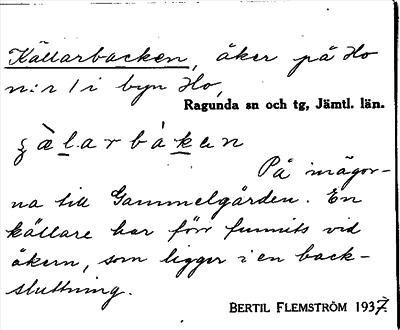 Källarbacken, åker på Ho
n:r 1 i byn Ho,
Ragunda sn och tg, Jämtl. län.
ʒ à l a r b à k e n
På mägor-
na till Gammelgården. En
källare har förr funnits vid
åkern, som ligger i en back-
sluttning.
BERTIL FLEMSTRÖM 1937.